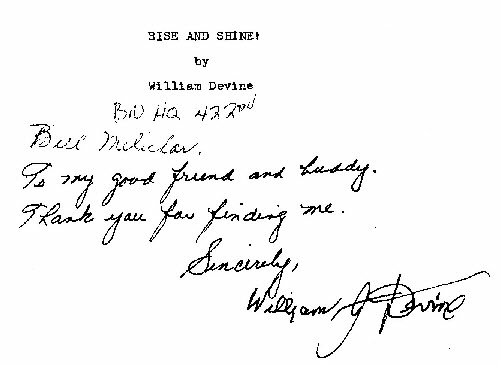 RISE AND SHINE!
by
William Devine
BN HQ 422ND
Bill Melichar.
To my good friend and buddy.
Thank you for finding me.
Sincerely,
William J Devine